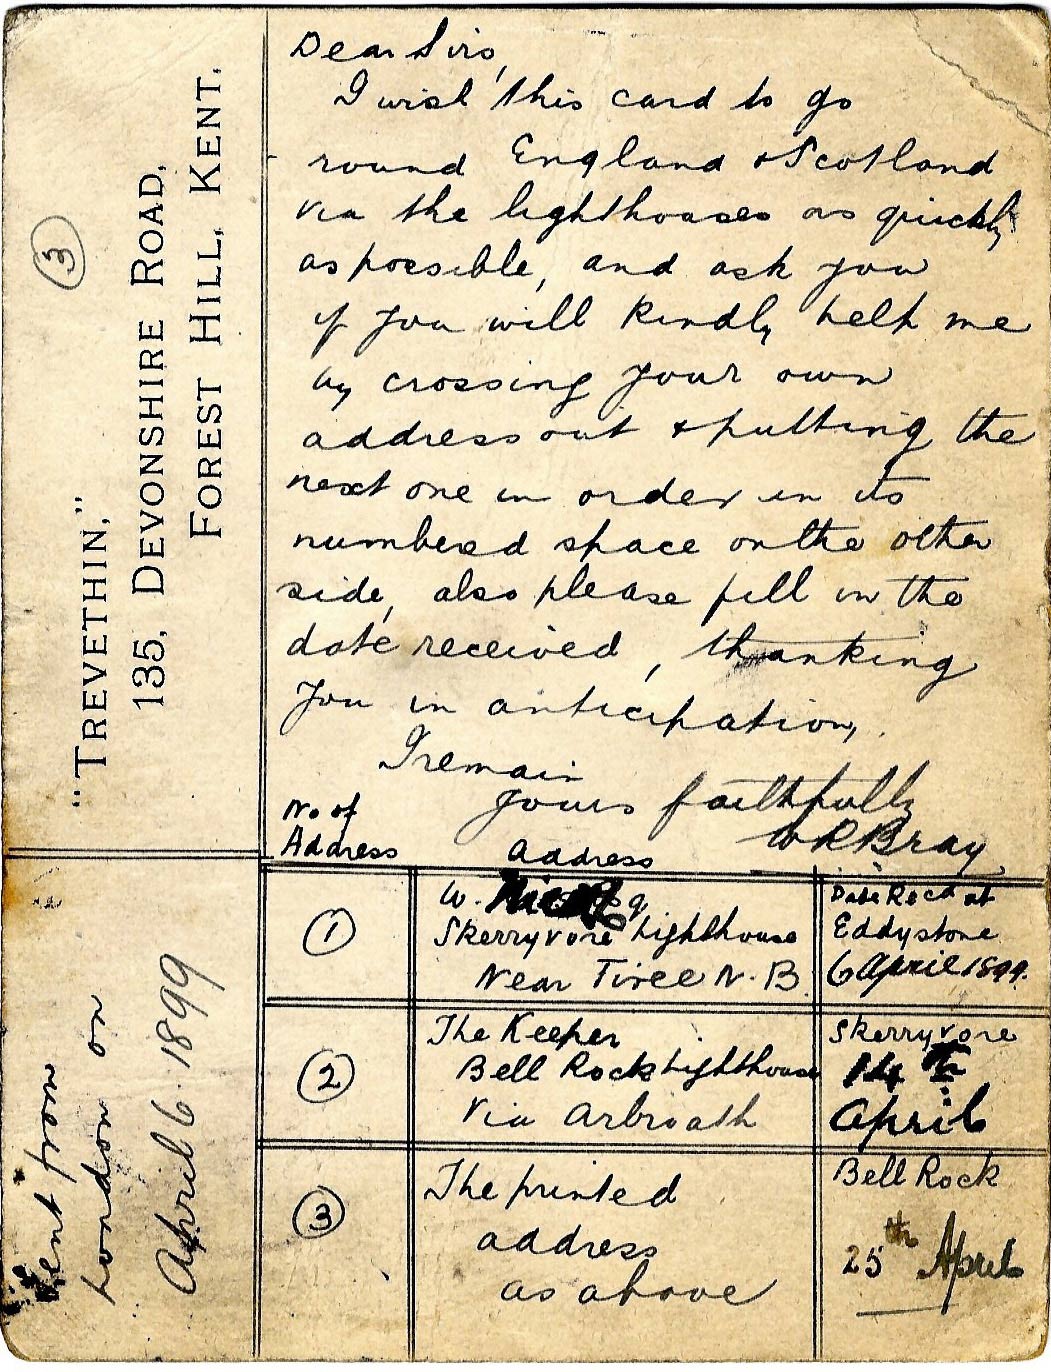 "TREVETHIN,"
135, DEVONSHIRE ROAD,
FOREST HILL, KENT.
3
Dear Sirs,
I wish this card to go
round England & Scotland
via the lighthouses as quickly
as possible, and ask you
if you will kindly help me
by crossing your own
address out & putting the
next one in order in its
numbered space on the other
side, also please fill in the
date received, thanking
you in anticipation,
I remain
Yours faithfully
W R Bray
No of
Address
Address
1
W.
Skerryvore Lighthouse
Near Tiree N.B.
Date Recd at
Eddystone
6 April 1899.
2
The Keeper
Bell Rock Lighthouse
Via Arbroath
Skerryvore
14th
April
3
The printed
address
as above
Bell Rock
25th April
Sent from
London on
April 6. 1899